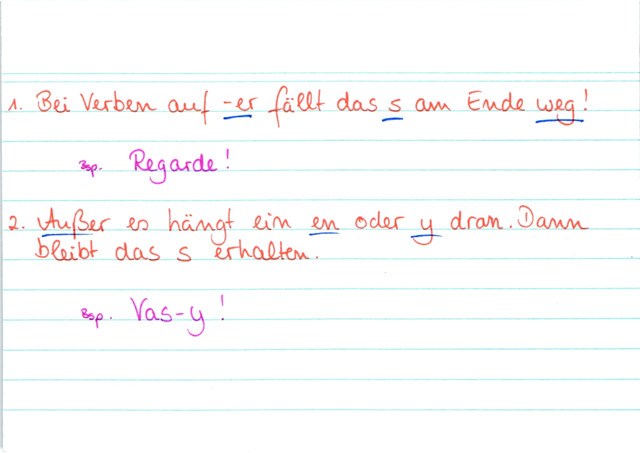 1. Bei Verben auf -er fällt das s am Ende weg!
Bsp. Regarde!
2. Außer es hängt ein en oder y dran. Dann
bleibt das s erhalten.
Bsp. Vas-y!